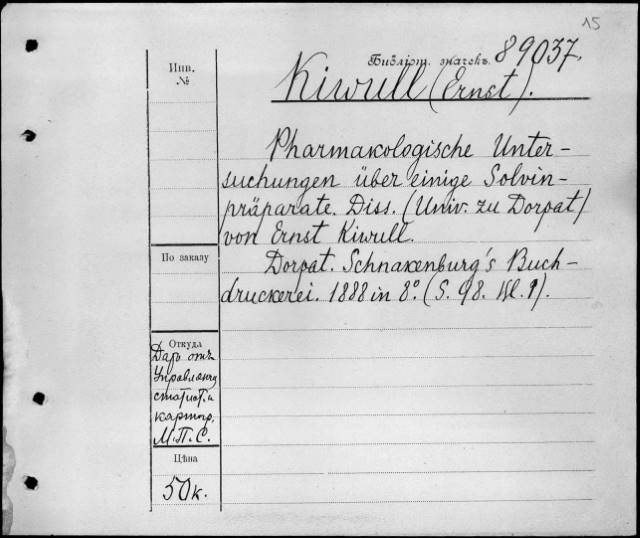 15
Библіот. значекъ. 89037.
Инв.
№
Kiwull (Ernst).
Pharmakologische Unter-
suchungen über einige Solvin-
präparate. Diss. (Univ. zu Dorpat)
von Ernst Kiwull.
По заказу
Dorpat. Schnakenburg's Buch-
druckerei. 1888 in 8º. (S. 98. Kl. 1).
Откуда
Даръ отъ
Управленія
статист. и
картогр.
М.П.С.
Цѣна
50 к.